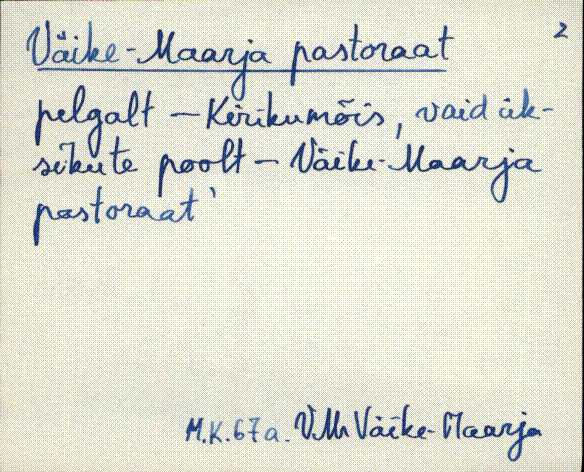 2
Väike-Maarja pastoraat
pelgalt – Kirikumõis, vaid ük-
sikute poolt – Väike-Maarja
pastoraat'
M.K.67a. V.M Väike-Maarja